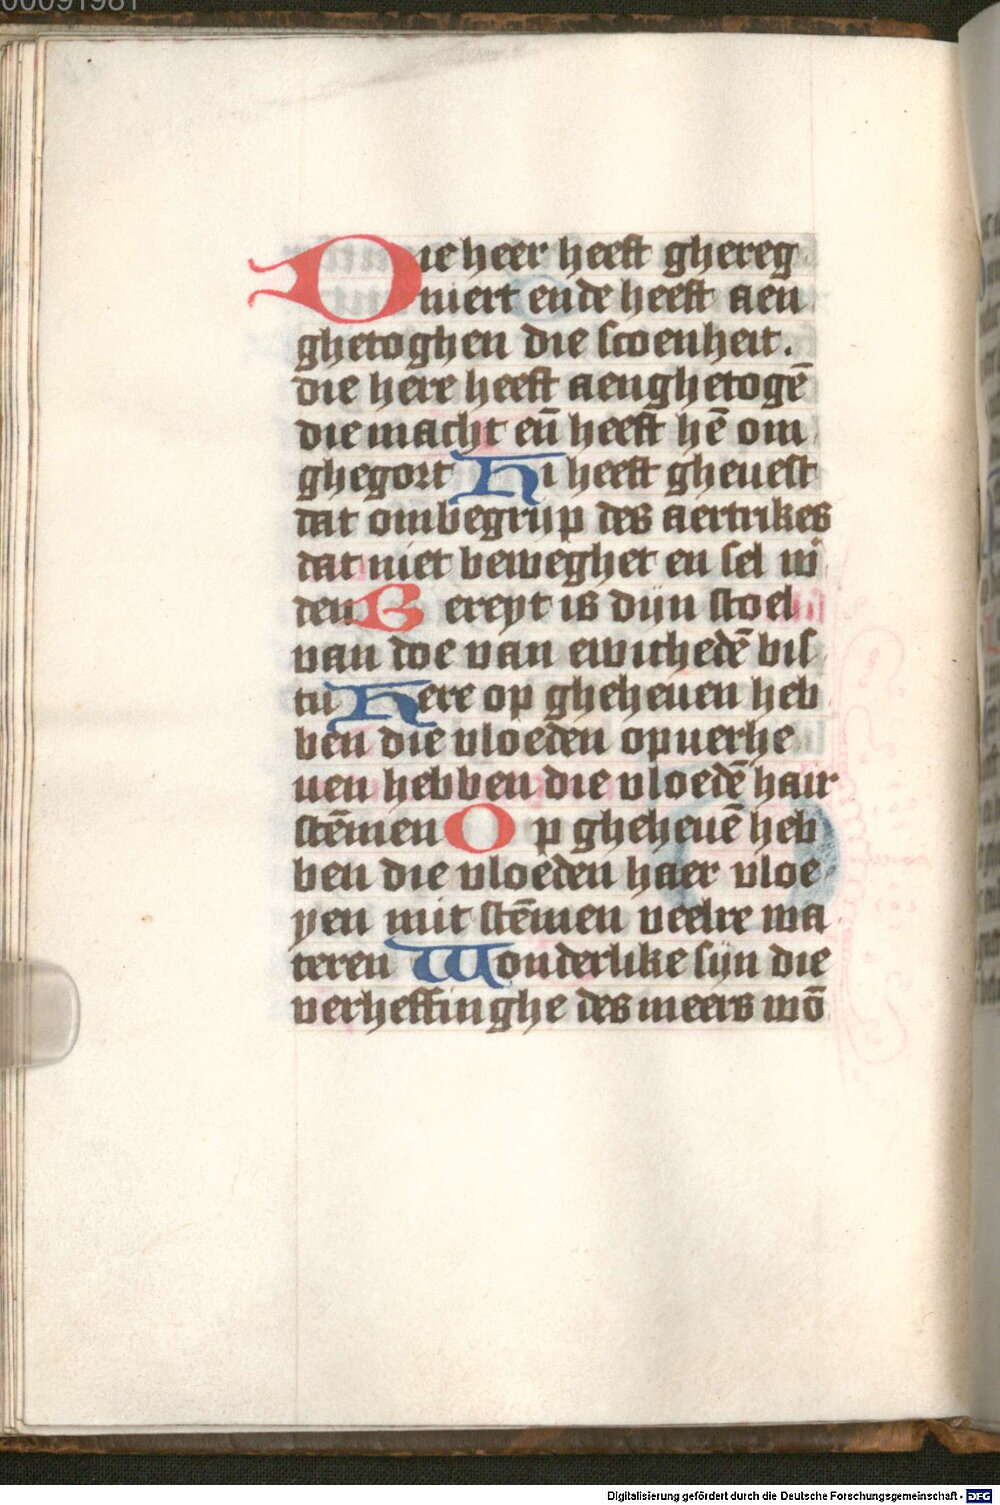 00091981
Die heer heeft ghereg
niert ende heeft aen
ghetoghen die scoenheit.
die here heeft aenghetogē
die macht eñ heeft hē om
ghegort Hi heeft gheuest
dat ombegrijp des aertrikes
dat niet beweghet en sel wi
den Bereyt is dijn stoel
van doe van ewichedē bis
tu Here op gheheuen heb
ben die vloeden opuerhe
uen hebben die vloedē hair
stēmen Op gheheuē heb
ben die vloeden haer vloe
yen mit stēmen veelre wa
teren Wonderlike sijn die
verheffinghe des meers wō
Digitalisierung gefördert durch die Deutsche Forschungsgemeinschaft - DFG